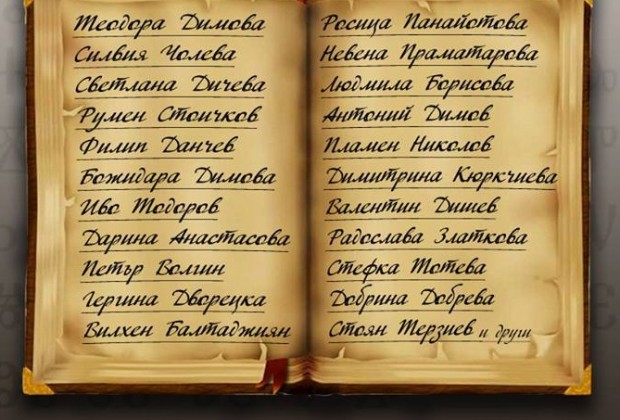 Теодора Димова
Силвия Чолева
Светлана Дичева
Румен Стоичков
Филип Данчев
Божидара Димова
Иво Тодоров
Дарина Анастасова
Петър Волгин
Гергина Дворецка
Вилхен Балтаджиян
Росица Панайотова
Невена Праматарова
Людмила Борисова
Антоний Димов
Пламен Николов
Димитрина Кюркчиева
Валентин Дишев
Радослава Златкова
Стефка Тотева
Добрина Добрева
Стоян Терзиев и други